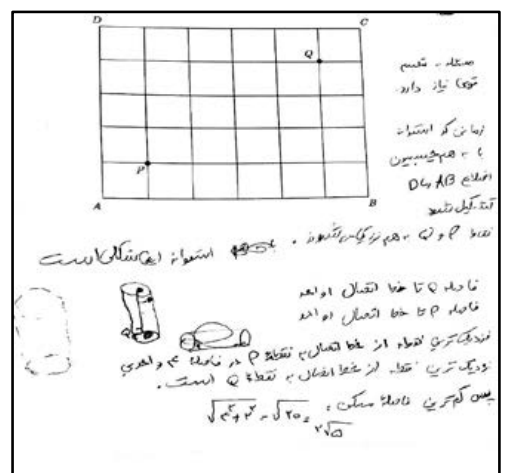 D C
Q
مسئله - تقسیم
نیاز دارد.
زمانی که استوانه
با به هم چسبیدن
اضلاع AB و DC
تشکیل شود
نقاط P و Q به هم نزدیک می‌شوند. استوانه این شکلی است
P
A B
فاصله Q تا خط اتصال ۱ واحد
فاصله P تا خط اتصال ۱ واحد
نزدیک‌ترین نقطه از خط اتصال به نقطه P در فاصله ۴ واحدی
نزدیک‌ترین نقطه از خط اتصال به نقطه Q است.
پس کم‌ترین فاصله ممکن:
√۲۰ = ۲√۵